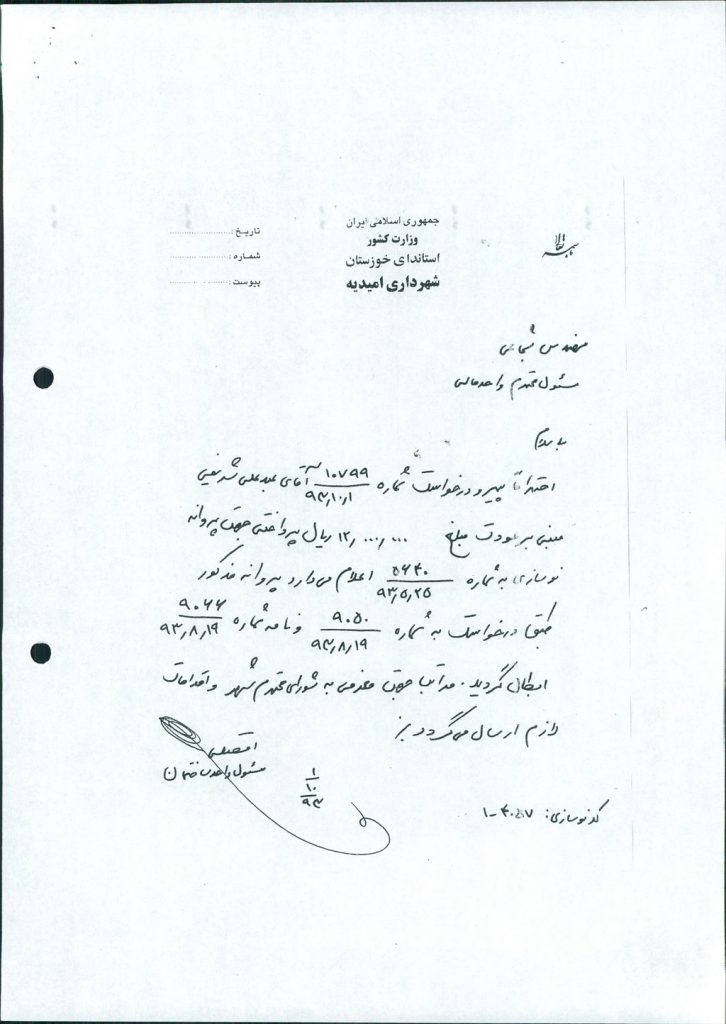 بسمه تعالی
جمهوری اسلامی ایران
وزارت کشور
استانداری خوزستان
شهرداری امیدیه
تاریخ:
شماره:
پیوست:
مهندس شجاعی
مسئول محترم واحد مالی
با سلام
احتراماً پیرو درخواست شماره ۱۰۷۹۹ ۹۳٫۱۰٫۱ آقای عبدعلی
مبنی بر عودت مبلغ ۱۲٫۰۰۰٫۰۰۰ ریال پرداختی جهت پروانه
نوسازی به شماره ۵۶۴۰ ۹۳٫۵٫۲۵ اعلام می‌دارد پروانه مذکور
طبق درخواست به شماره ۹۰۵۰ ۹۳٫۸٫۱۹ و نامه شماره ۹۰۶۶ ۹۳٫۸٫۱۹
ابطال گردید. مراتب جهت معرفی به شورای محترم شهر و اقدامات
لازم ارسال می‌گردد
مسئول واحد ساختمان
۱ ۱۰ ۹۳
کد نوسازی: